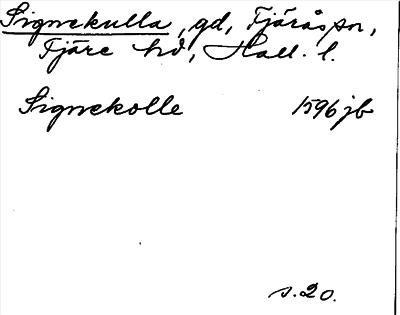 Signekulla, gd, Fjärås sn,
Fjäre hd, Hall. l.
Signekolle 1596 jb
s. 20.